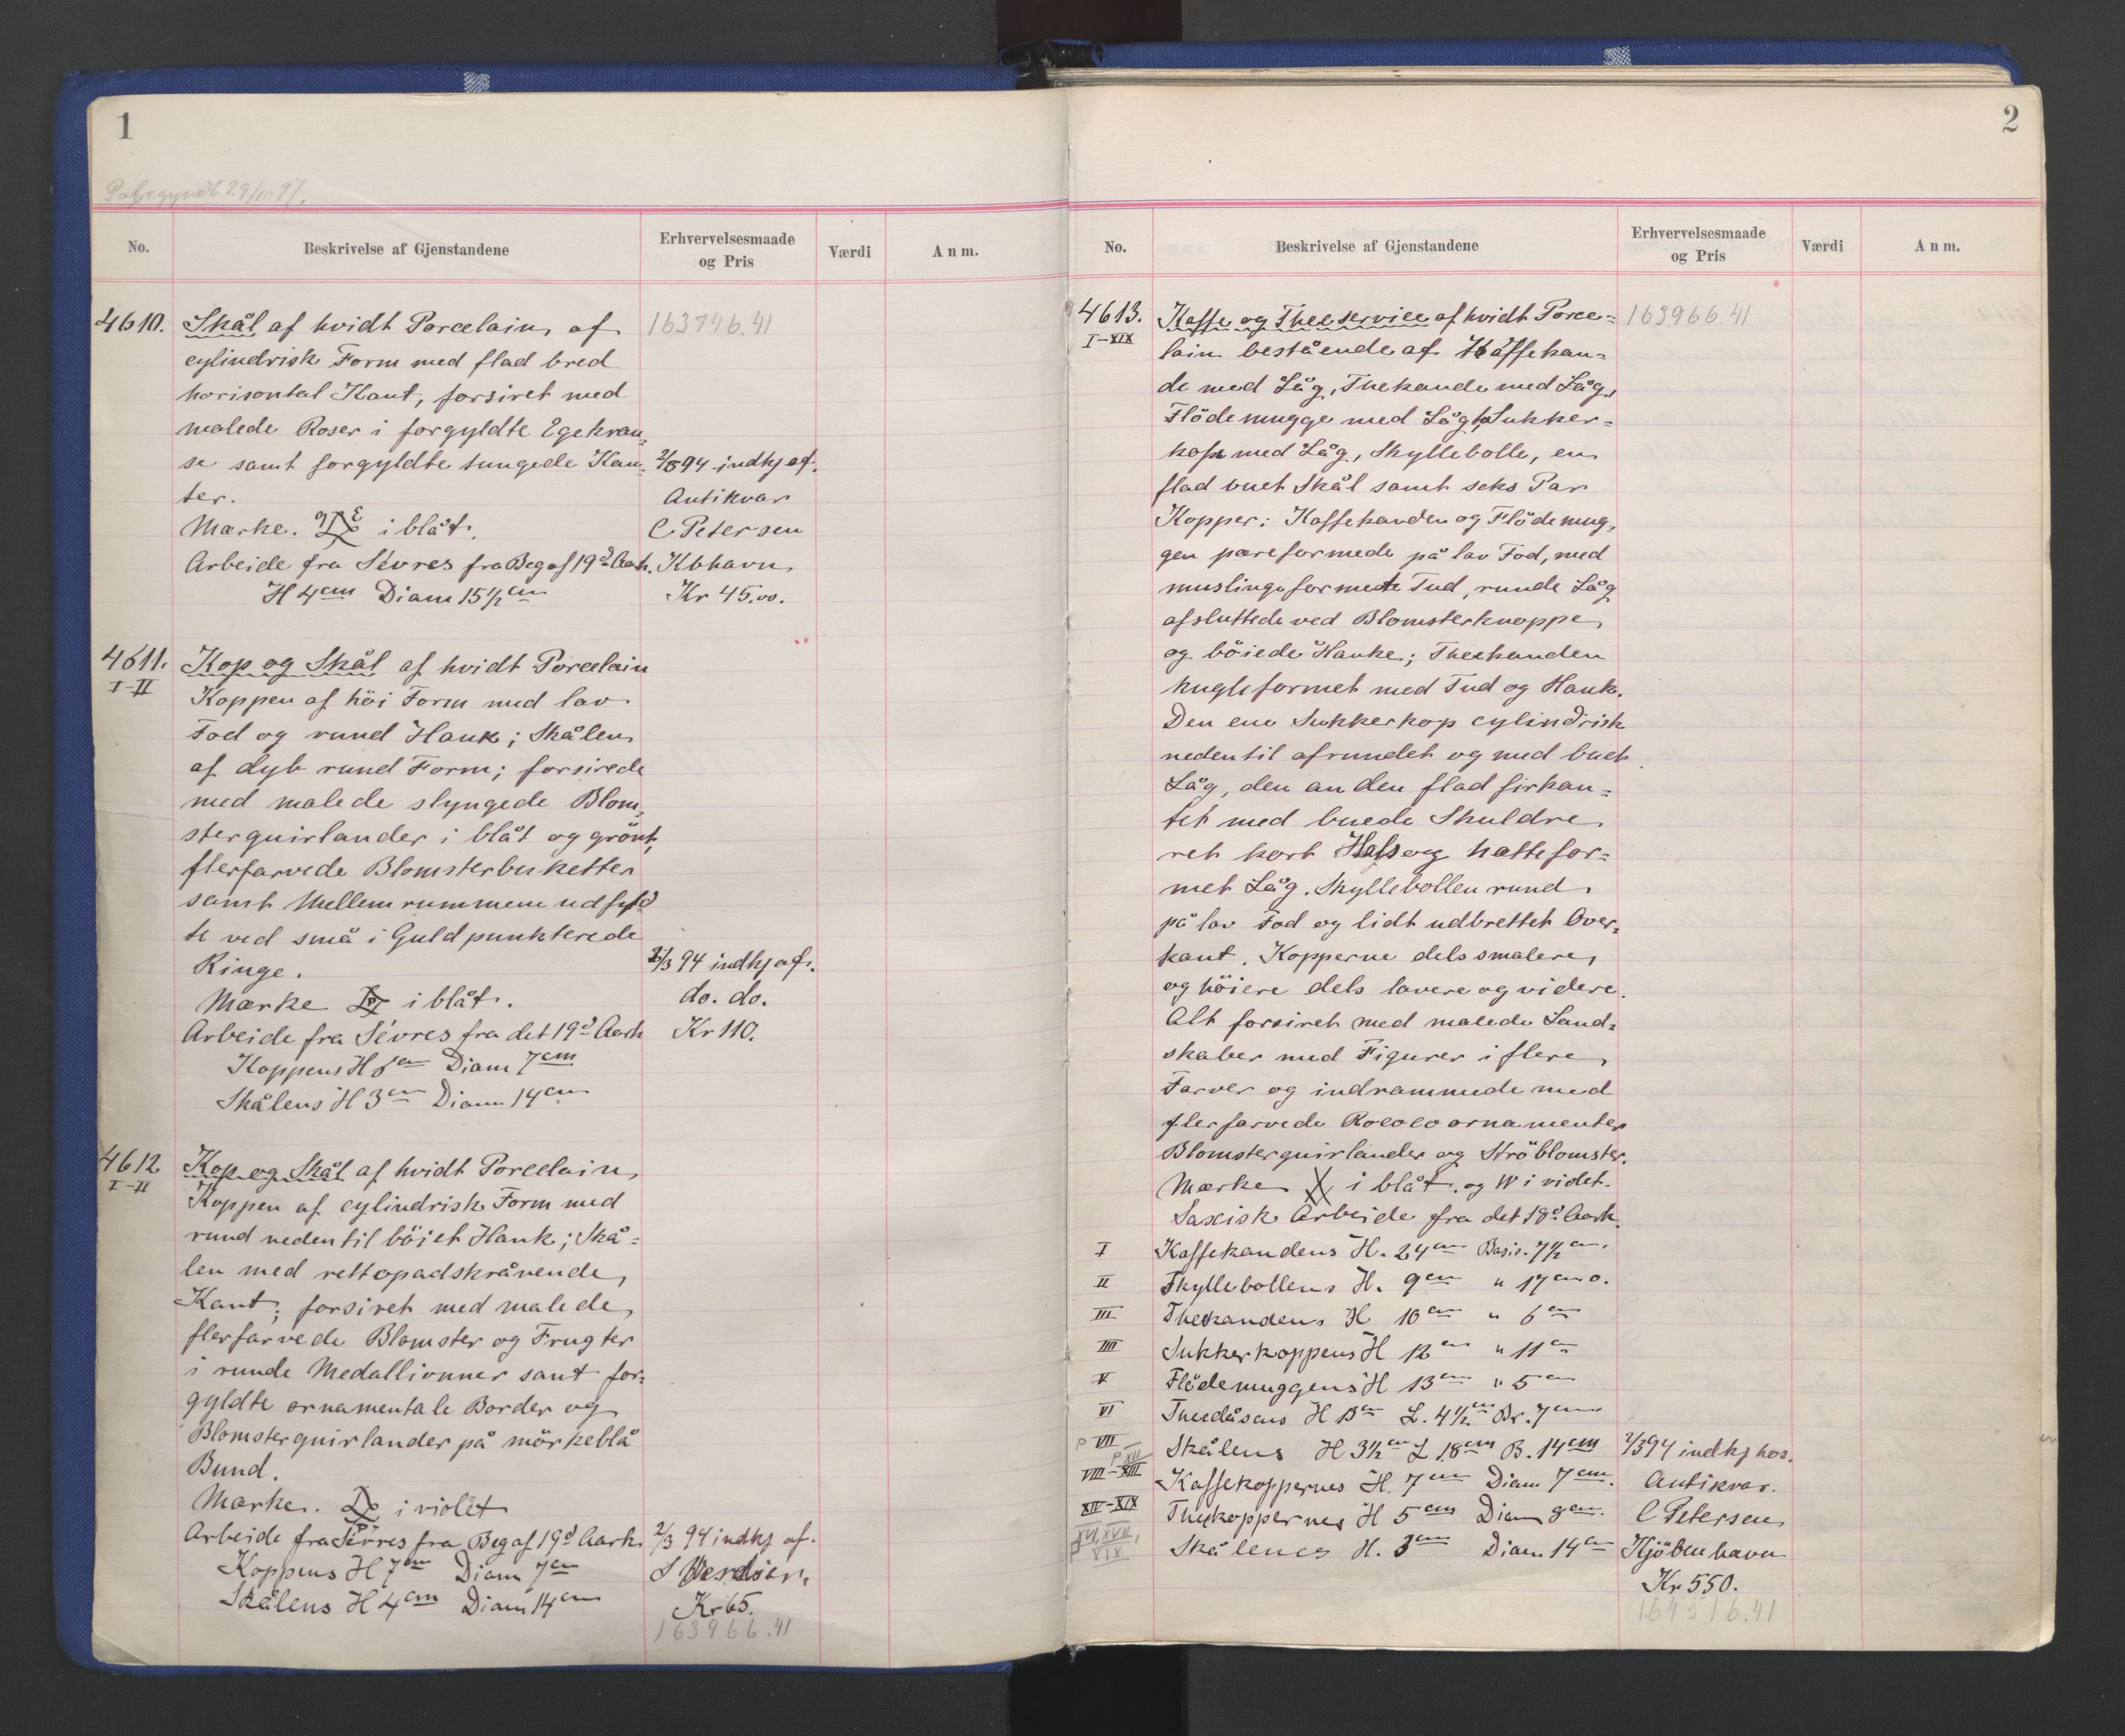 1
Påbegyndt 29/10 97.
No.
Beskrivelse af Gjenstandene
Erhvervelsesmaade
og Pris
Værdi
Anm.
4610. Skål af hvidt Porcelain, af 163746.41
cylindrisk Form med flad bred
horisontal Kant, forsiret med
malede Roser i forgyldte Egekran-
se samt forgyldte tungede Kan- 2/3 94 indkj af.
ter. Antikvar
Mærke. i blåt. C Petersen
Arbeide fra Sévres fra Beg af 19d Aarh. Kbhavn.
H 4cm Diam 15 1/2 cm Kr 45.00.
4611. Kop og Skål af hvidt Porcelain
I-II Koppen af höi Form med lav
Fod og rund Hank; Skålen
af dyb rund Form; forsirede
med malede slyngede Blom-
sterguirlander i blåt og grönt,
flerfarvede Blomsterbuketter
samt Mellemrummene udfyld
te ved små i Guld punkterede
Ringe. 2/3 94 indkj af.
Mærke i blåt. do. do.
Arbeide fra Sévres fra det 19d Aarh Kr 110.
Koppens H 6cm Diam 7cm
Skålens H 3cm Diam 14cm
4612 Kop og Skål af hvidt Porcelain,
I-II Koppen af cylindrisk Form med
rund nedentil böiet Hank; Skå-
len med rettopadskrånende
Kant; forsiret med malede,
flerfarvede Blomster og Frugter
i runde Medallionner samt for-
gyldte ornamentale Border og
Blomsterguirlander på mörkeblå
Bund.
Mærke. i violet
Arbeide fra Sévres fra Beg af 19d Aarh. 2/3 94 indkj af.
Koppens H 7cm Diam 7cm
Skålens H 4cm Diam 14cm Kr 65.
163966.41
2
No.
Beskrivelse af Gjenstandene
Erhvervelsesmaade
og Pris
Værdi
Anm.
4613. Kaffe og Theeservice af hvidt Porce- 163966.41
I-XIX lain bestående af Kaffekan-
de med Låg, Thekande med Låg,
Flödemugge med Låg, Sukker-
kop med Låg, Skyllebolle, en
flad buet Skål samt seks Par
Kopper; Kaffekanden og Flödemug-
gen pæreformede på lav Fod, med
muslingeformede Tud, runde Låg
afsluttede ved Blomsterknoppe
og böiede Hanke; Theekanden
kugleformet med Tud og Hank.
Den ene Sukkerkop cylindrisk
nedentil afrundet og med buet
Låg, den anden flad firkan-
tet med buede Skuldre
ret kort Hals og hattefor-
met Låg. Skyllebollen rund
på lav Fod og lidt udbrettet Over-
kant. Kopperne dels smalere
og höiere dels lavere og videre.
Alt forsiret med malede Land-
skaber med Figurer i flere
Farver og indrammede med
flerfarvede Rococoornamenter
Blomsterguirlander og Ströblomster.
Mærke i blåt. og W i violet.
Saxisk Arbeide fra det 18d Aarh.
I Kaffekandens H. 24cm Basis. 7 1/2 cm.
II Skyllebollens H. 9cm " 17cm o.
III Theekandens H 10cm " 6cm
IIII Sukkerkoppens H 12cm " 11cm
V Flödemuggens H 13cm " 5cm
VI Theedåsens H 13cm L. 4 1/2 cm Br. 7cm
VII Skålens H 3 1/2 cm L 18cm B. 14cm 2/3 94 indkj hos.
VIII-XIII Kaffekoppernes H. 7cm Diam 7cm. Antikvar.
XIV-XIX Thekoppernes H 5cm Diam 8cm. C Petersen
XVII, XIX Skålenes H. 3cm Diam 14cm Kjöbenhavn
Kr 550.
164516.41